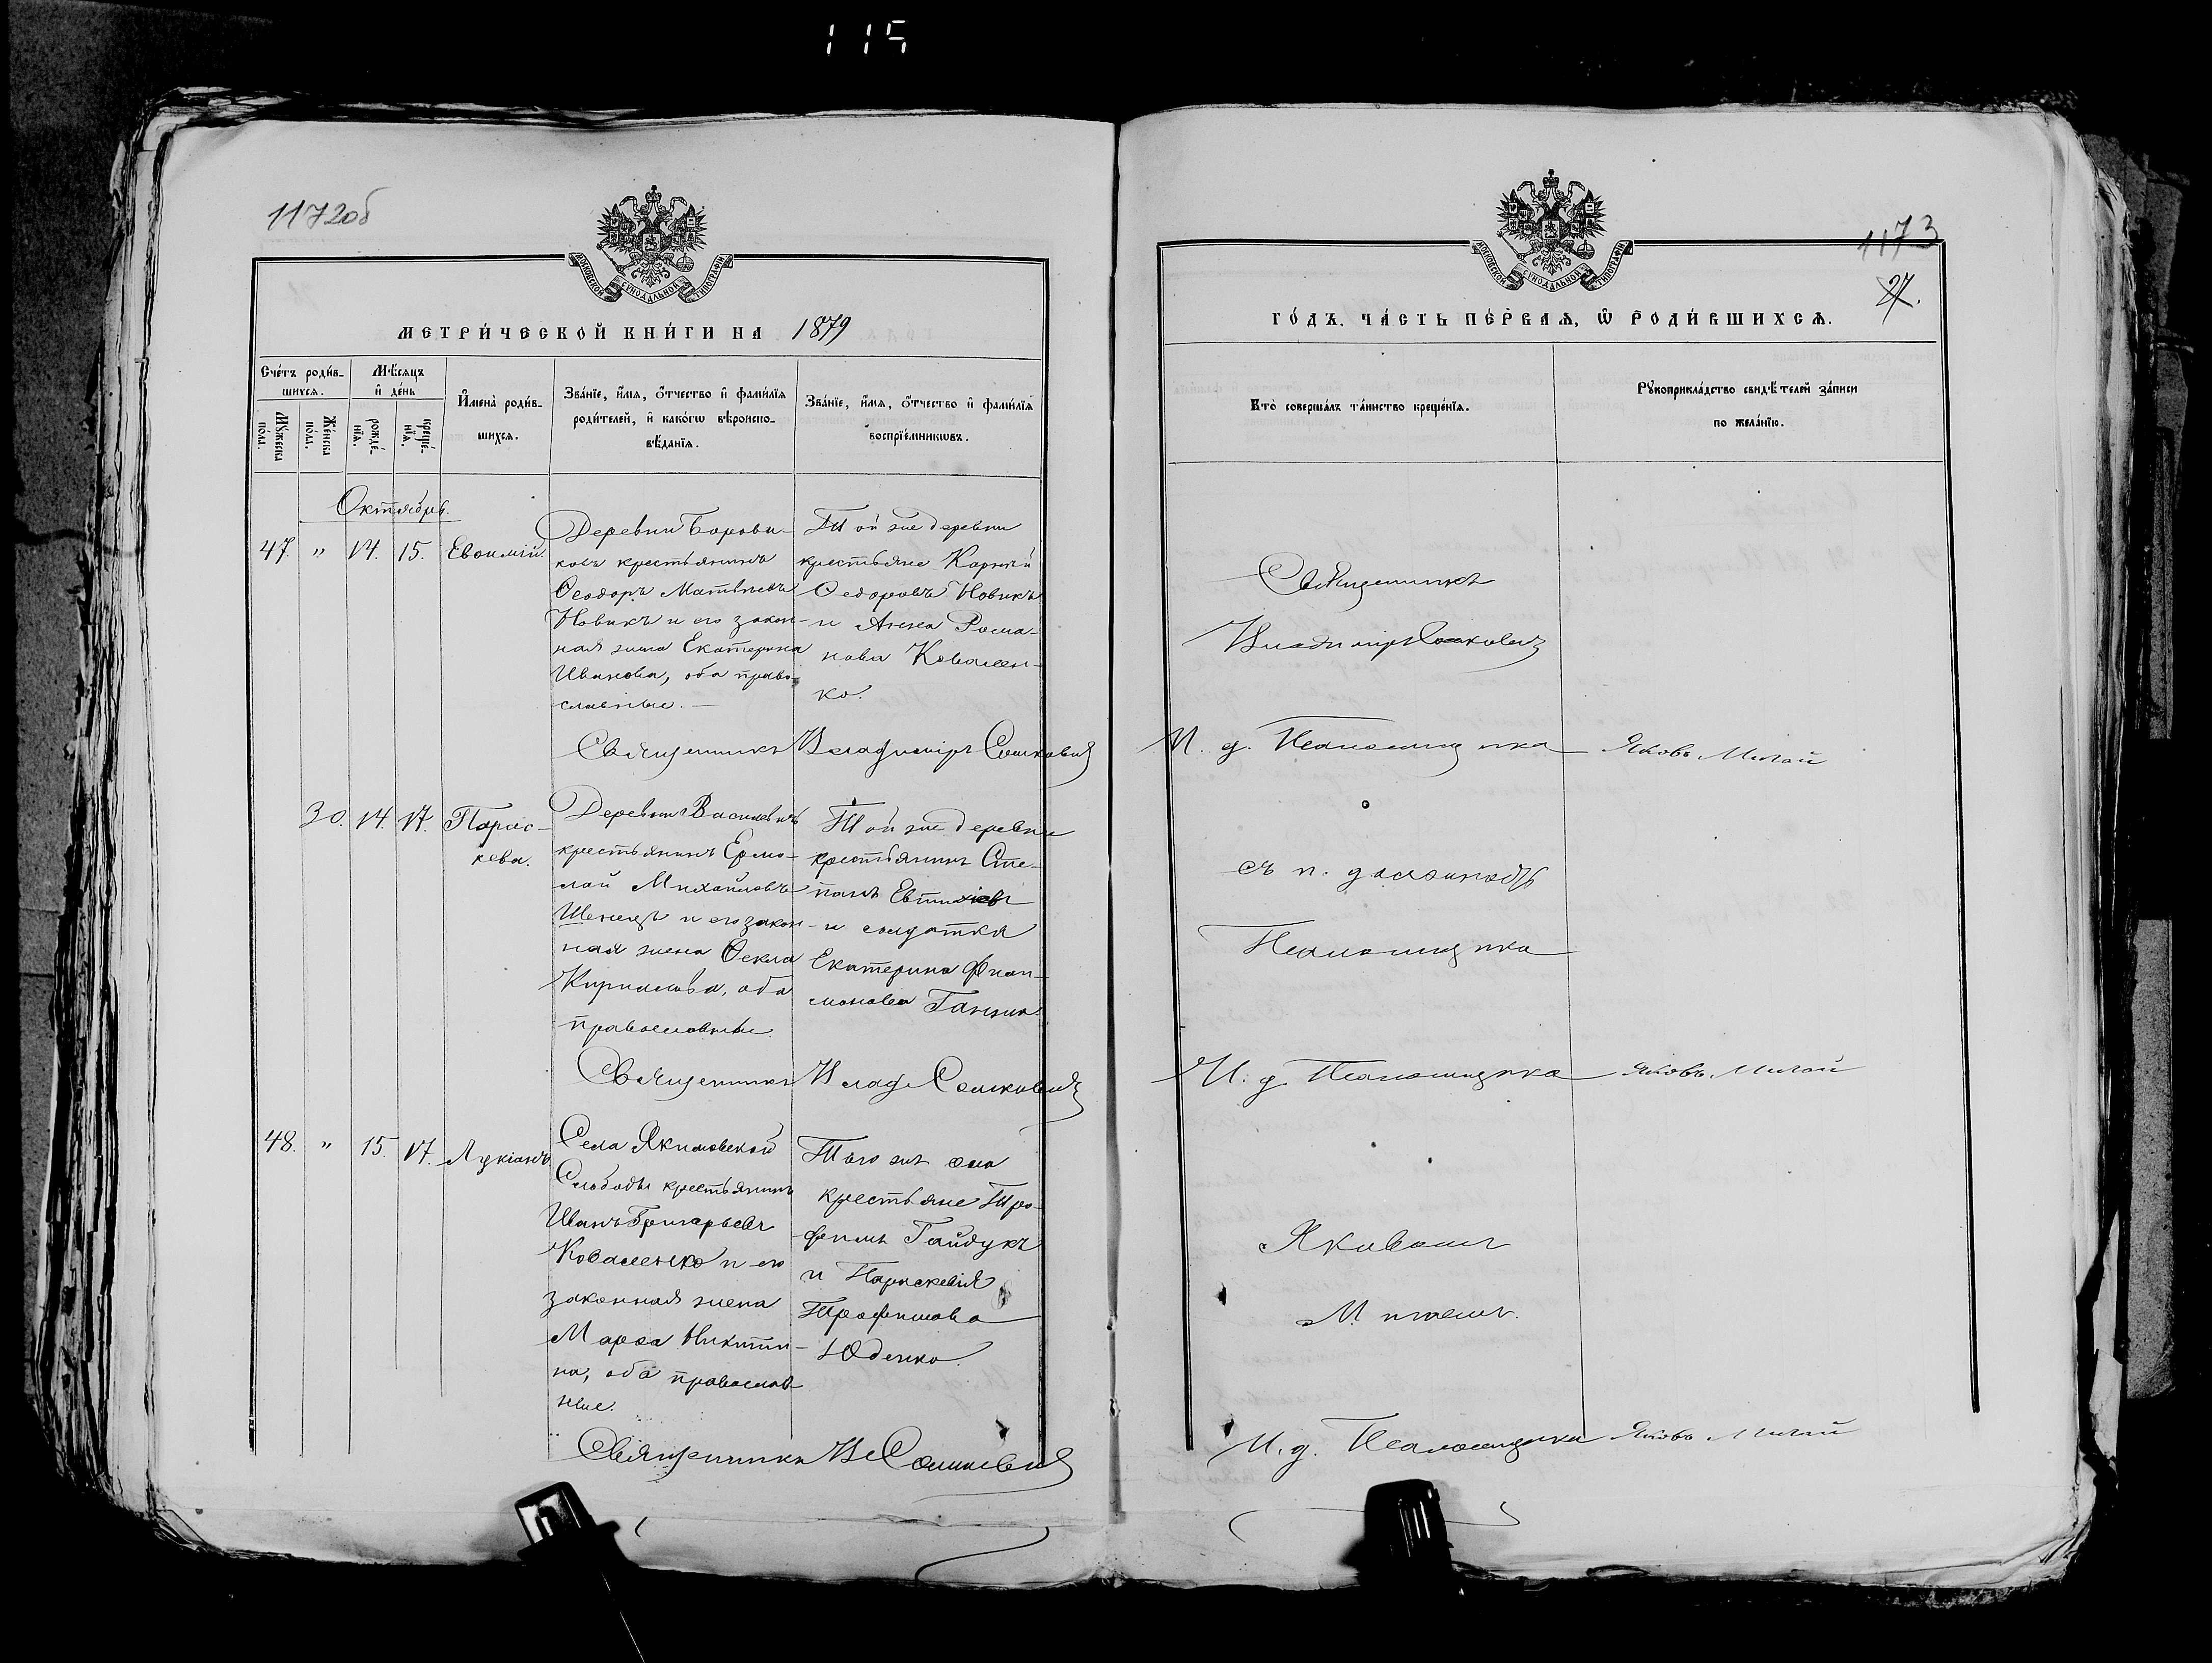 115
1172об
МОСКОВСКОЙ СѴНОДАЛЬНОЙ ТИПОГРАФІИ
МЕТРИ́ЧЕСКОЙ КНИ́ГИ НА 1879
Сче́тъ роди́в-
шихсѧ.
Мꙋ́жеска по́ла.
Же́нска по́ла.
Мѣ́сѧцъ
и҆ де́нь
рожде́-
нїѧ.
креще́-
нїѧ.
И҆мена̀ роди́в-
шихсѧ.
Зва́нїе, и҆́мѧ, ѻ҆́тчество и҆ фами́лїѧ
роди́телей, и҆ како́гѡ вѣроиспо-
вѣ́данїѧ.
Зва́нїе, и҆́мѧ, ѻ҆́тчество и҆ фами́лїѧ
воспрїе́мникѡвъ.
Октябрь.
47. " 14. 15. Евѳимій.
Деревни Борови-
ковъ крестьянинъ
Ѳеодоръ Матвѣевъ
Новикъ и его закон-
ная жена Екатерина
Иванова, оба право-
славные. —
Той же деревни
крестьяне Карпъ
Ѳедоровъ Новикъ
и Анна Рома-
нова Ковален-
ко.
Священникъ Владиміръ Сошковичъ
30. 14. 17. Парас-
кева.
Деревни Василевичъ
крестьянинъ Ермо-
лай Михайловъ
Шенецъ и его закон-
ная жена Ѳекла
Кирилова, оба
православные.
Той же деревни
крестьянинъ Сте-
панъ Евтихіевъ
и солдатка
Екатерина Фили-
монова
Священникъ Влад. Сошковичъ
48. " 15. 17. Лукіанъ
Села Якимовской
Слободы крестьянинъ
Иванъ Григорьевъ
Коваленко и его
законная жена
Марѳа Никити-
на, оба православ-
ные.
Того же села
крестьяне Тро-
фимъ Гайдукъ
и Параскевія
Трофимова
Юденко.
Священникъ Вл. Сошковичъ
1173
27.
МОСКОВСКОЙ СѴНОДАЛЬНОЙ ТИПОГРАФІИ
ГО́ДЪ. ЧА́СТЬ ПЕ́РВАѦ, Ѡ҆ РОДИ́ВШИХСѦ.
Кто̀ соверша́лъ та́инство креще́нїѧ.
Рꙋкоприкла́дство свидѣ́телей за́писи
по жела́нїю.
Священникъ
Владиміръ Сошковичъ
И. д. Псаломщика Яковъ Мигай
съ и. должность
Псаломщика
И. д. Псаломщика Яковъ Мигай
Яковомъ
Мигаемъ.
И. д. Псаломщика Яковъ Мигай